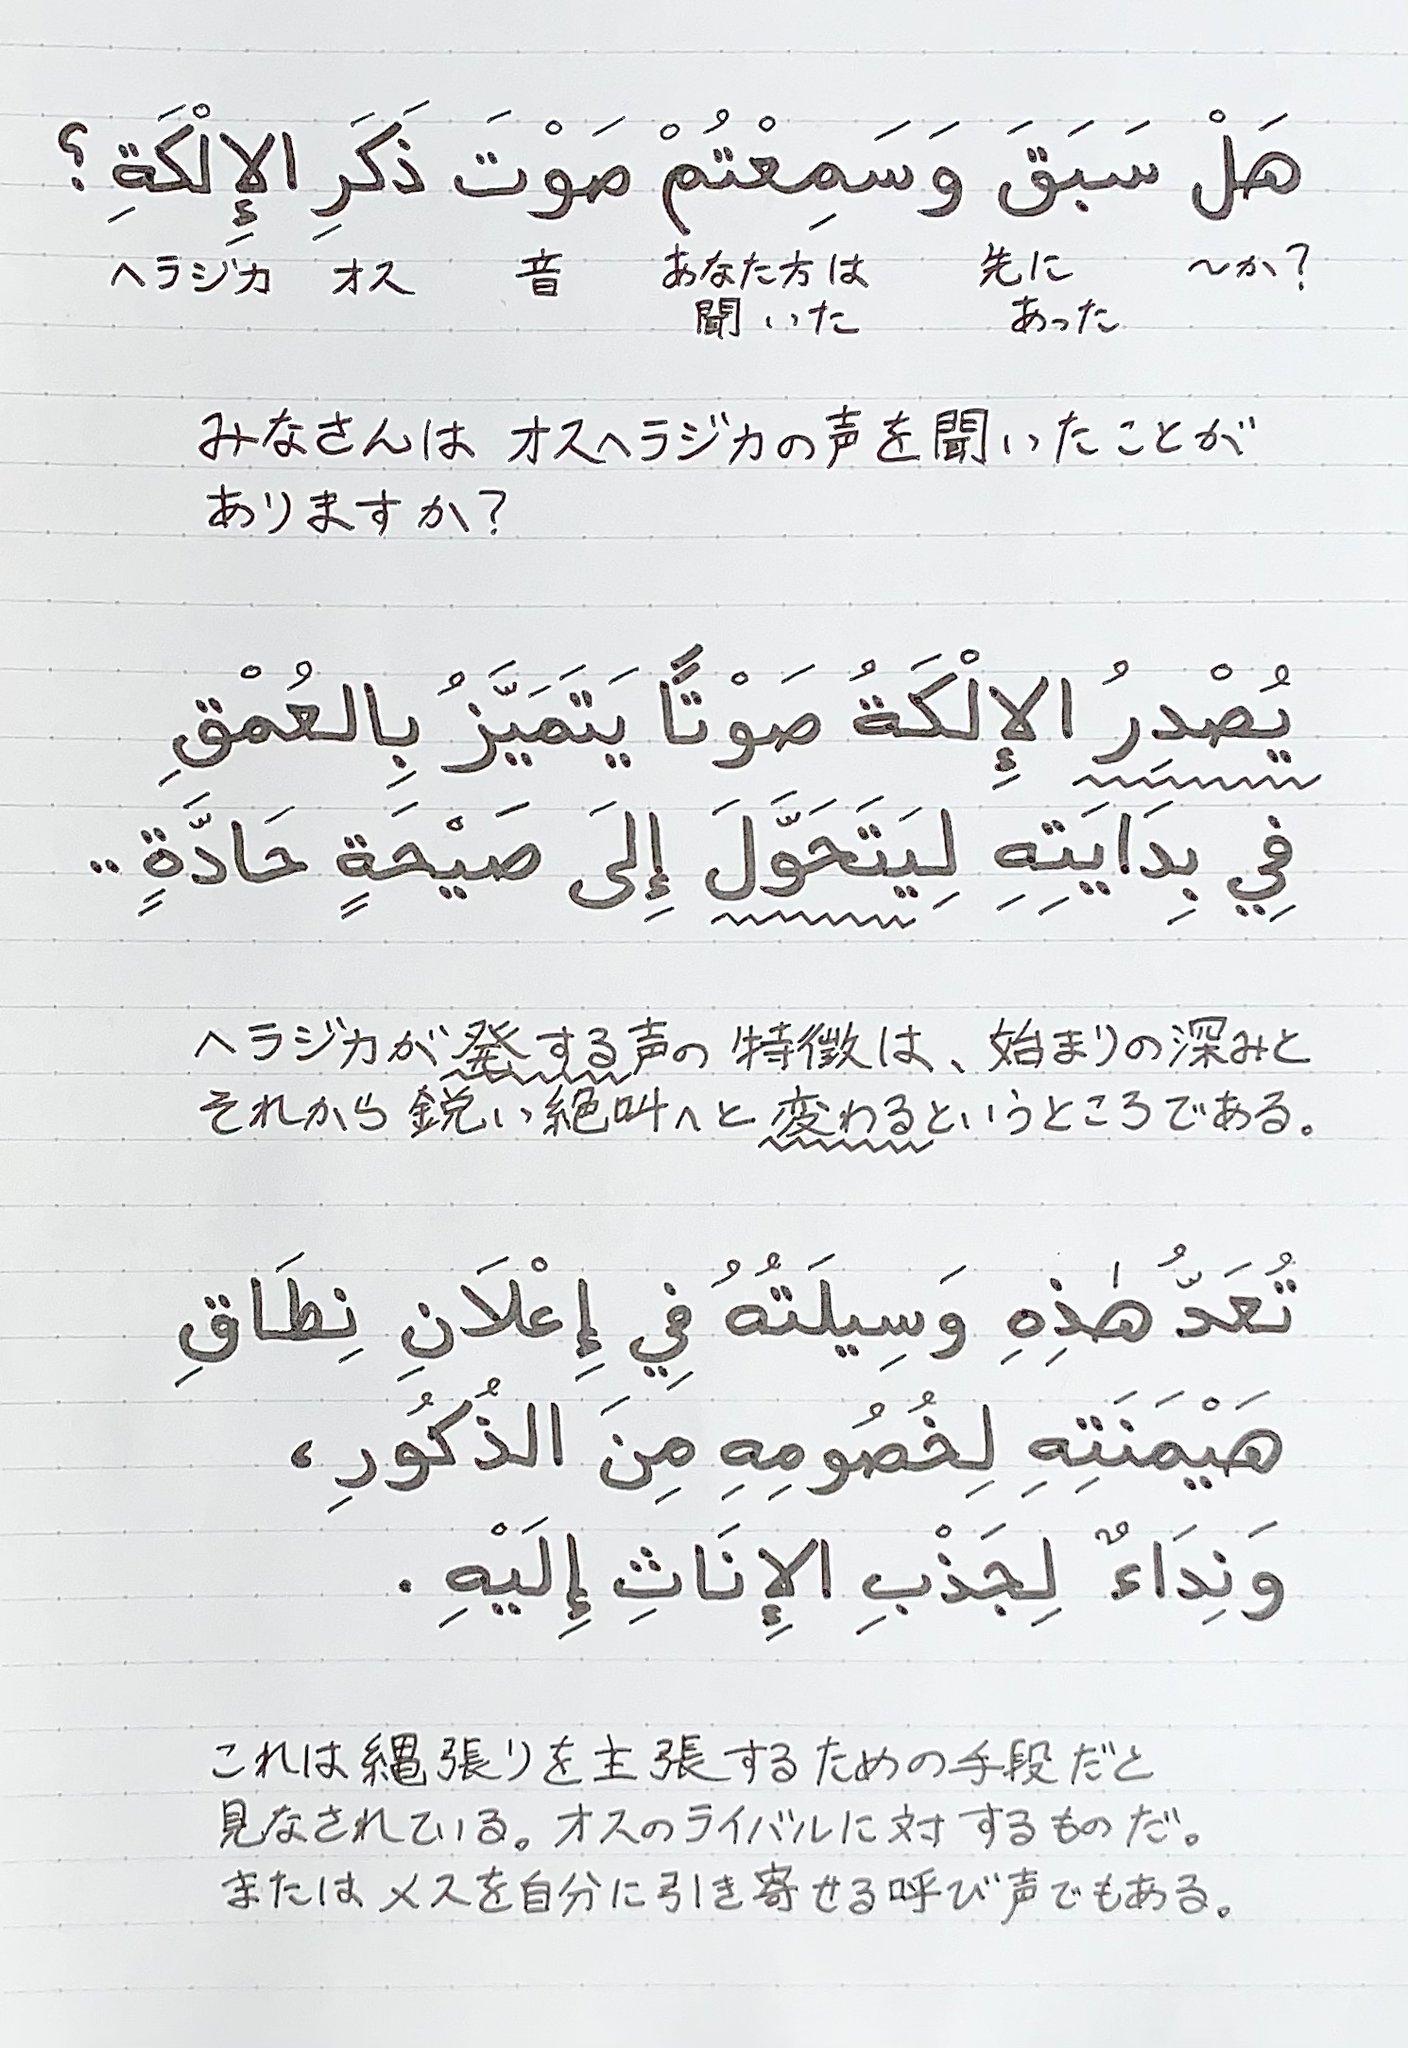 هَلْ سَبَقَ وَسَمِعْتُمْ صَوْتَ ذَكَرِ الإِلْكَةِ؟
ヘラジカ オス 音 あなた方は 先に ～か？
聞いた あった
みなさんは オスヘラジカの声を聞いたことが
ありますか？
يُصْدِرُ الإِلْكَةُ صَوْتًا يَتَمَيَّزُ بِالعُمْقِ
فِي بِدَايَتِهِ لِيَتَحَوَّلَ إِلَى صَيْحَةٍ حَادَّةٍ..
ヘラジカが発する声の特徴は、始まりの深みと
それから鋭い絶叫へと変わるというところである。
تُعَدُّ هٰذِهِ وَسِيلَتُهُ فِي إِعْلَانِ نِطَاقِ
هَيْمَنَتِهِ لِخُصُومِهِ مِنَ الذُكُورِ،
وَنِدَاءٌ لِجَذْبِ الإِنَاثِ إِلَيْهِ.
これは縄張りを主張するための手段だと
見なされている。オスのライバルに対するものだ。
またはメスを自分に引き寄せる呼び声でもある。